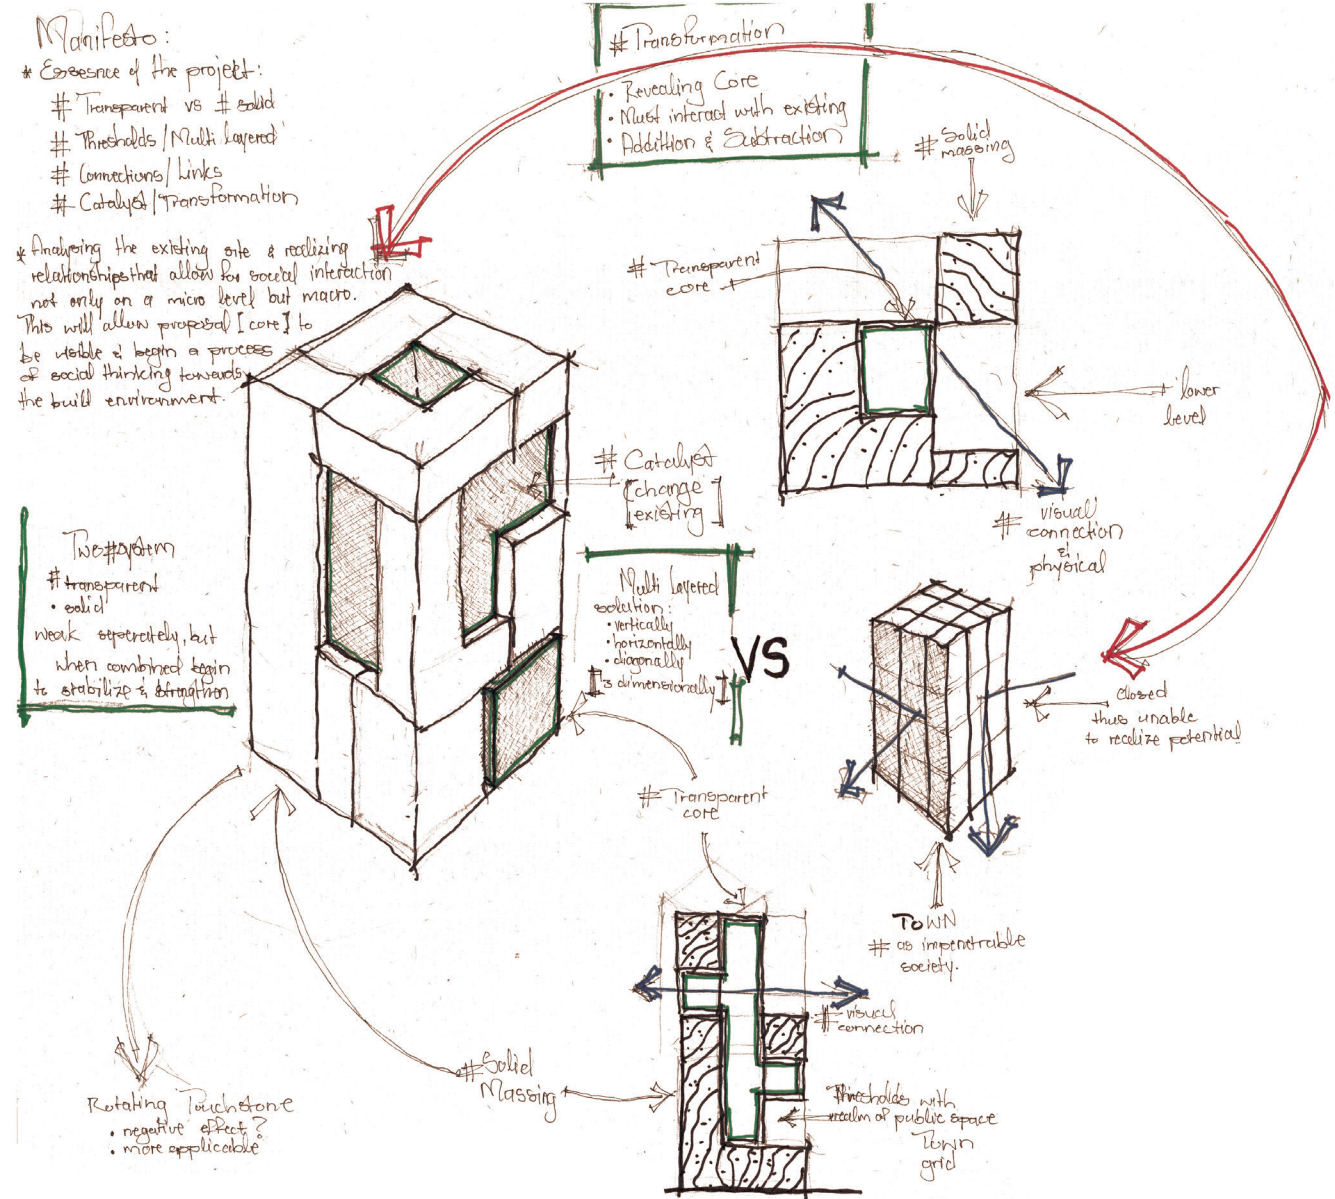 Manifesto:
* Essesnce of the project:
# Transparent vs # solid
# Thresholds/Multi layered
# Connections/Links
# Catalyst/Transformation
* Analysing the existing site & realizing
relationships that allow for social interaction
not only on a micro level but macro.
This will allow proposal [core] to
be visible & begin a process
of social thinking towards
the built environment.
# Transformation
• Revealing Core
• Must interact with existing
• Addittion & Subtraction
# Solid
massing
# Transparent
core
lower
level
# visual
connection
&
physical
# Catalyst
[change
existing]
Two #system
# transparent
• solid
weak seperately, but
when combined begin
to stabilize & strengthen
Multi layered
solution:
• vertically
• horizontally
• diagonally
[3 dimensionally]
VS
closed
thus unable
to realize potential
# Transparent
core
TOWN
# as impenetrable
society.
# visual
connection
# Solid
Massing
Thresholds with
realm of public space
Town
grid
Rotating Touchstone
• negative effect?
• more applicable?